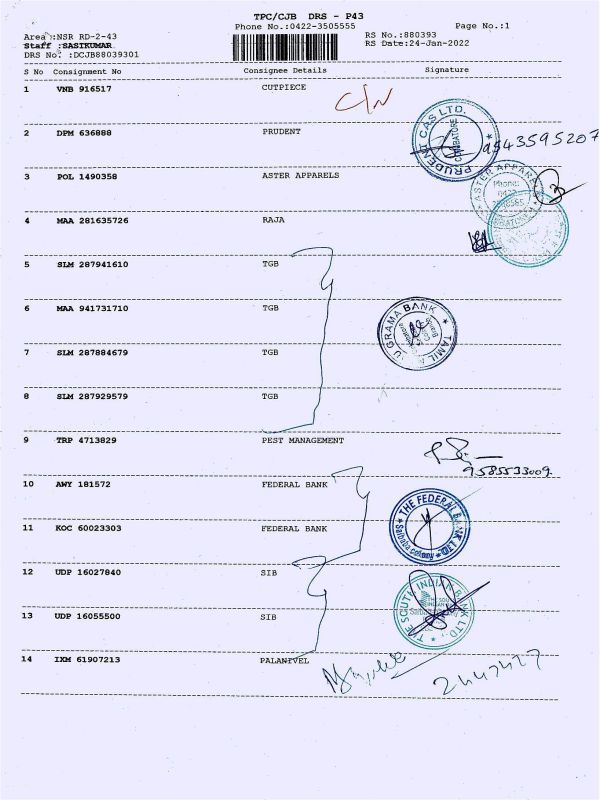 TPC/CJB DRS - P43
Phone No.:0422-3505555
Page No.:1
Area :NSR RD-2-43
Staff :SASIKUMAR
DRS No. :DCJB88039301
RS No.:880393
RS Date:24-Jan-2022
S No Consignment No Consignee Details Signature
1 VNB 916517 CUTPIECE
C/N
2 DPM 636888 PRUDENT
PRUDENT CAS LTD. COIMBATORE
9543595207
3 POL 1490358 ASTER APPARELS
ASTER APPARELS
Phone:
0422
4 MAA 281635726 RAJA
5 SLM 287941610 TGB
6 MAA 941731710 TGB
GRAMA BANK
TAMIL
7 SLM 287884679 TGB
8 SLM 287929579 TGB
9 TRP 4713829 PEST MANAGEMENT
9585533009
10 AWY 181572 FEDERAL BANK
THE FEDERAL BANK LTD.
Saibaba colony
11 KOC 60023303 FEDERAL BANK
12 UDP 16027840 SIB
THE SOUTH INDIAN BANK LTD.
13 UDP 16055500 SIB
14 IXM 61907213 PALANIVEL